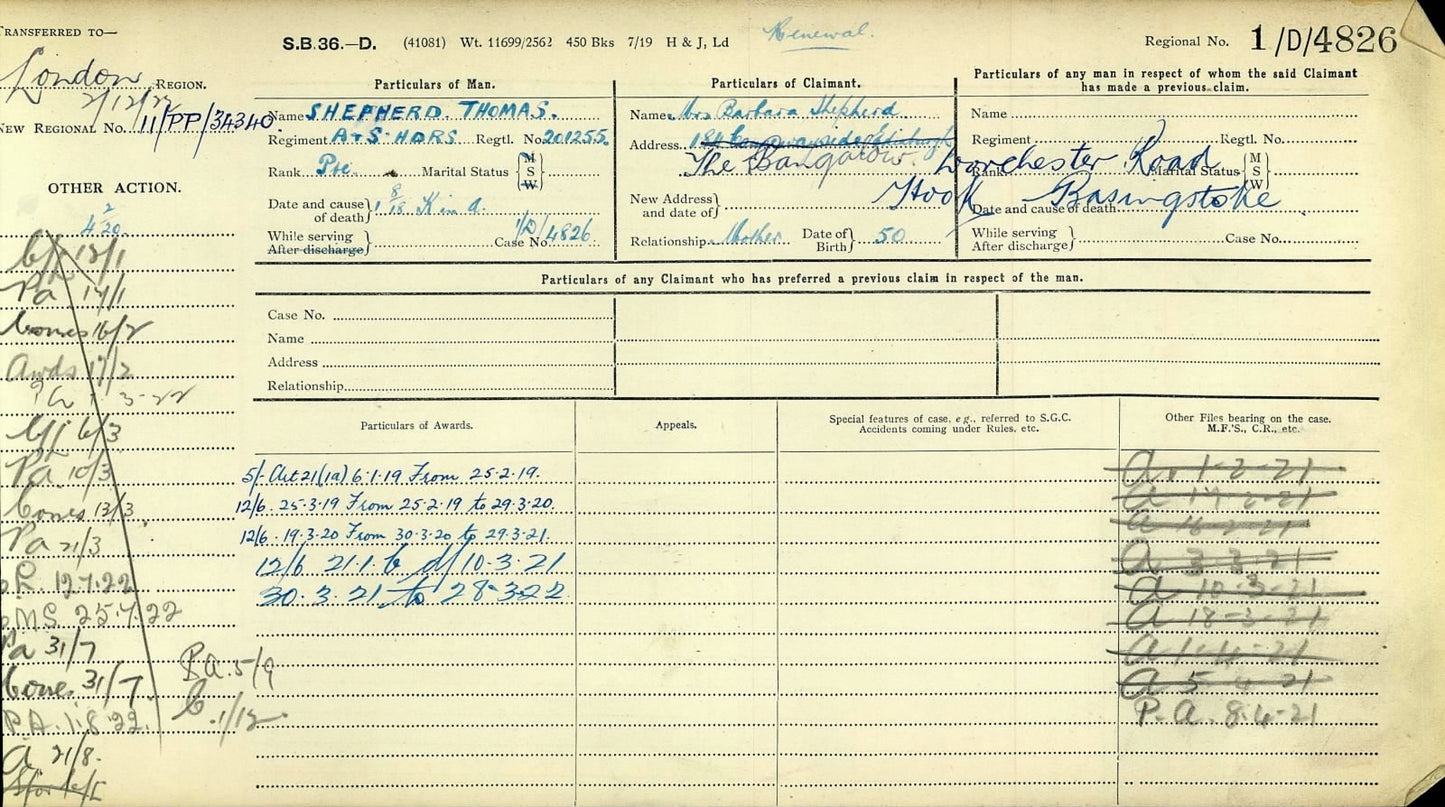 TRANSFERRED TO—
London REGION.
2/12/22
NEW REGIONAL No. 11/PP/34340
OTHER ACTION.
2
4 20.
13/1
Pa 17/1
Comes 16/2
Awds 17/2
3-22
6/3
Pa 10/3
Comes 13/3
Pa 21/3
R. 12.7.22
MS. 25.7.22
Pa 31/7
31/7
P.A. 1.8.22.
a 21/8.
P.a. 5/9
C. 1/12
S.B. 36.—D. (41081) Wt. 11699/2562 450 Bks 7/19 H & J, Ld
Renewal.
Regional No. 1/D/4826
Particulars of Man.
Name SHEPHERD THOMAS.
Regiment A & S HDRS Regtl. No. 201255.
Rank Pte. Marital Status {M S W
Date and cause of death} 1 8/18 K in a.
While serving
After discharge} Case No. 1/D/4826
Particulars of Claimant.
Name Mrs Barbara Shepherd
Address 184 Causewayside Edinburgh
The Bangarow. Dorchester Road
Hook Basingstoke
New Address and date of}
Relationship Mother Date of Birth} 50
Particulars of any man in respect of whom the said Claimant
has made a previous claim.
Name
Regiment Regtl. No.
Rank Marital Status {M S W
Date and cause of death
While serving
After discharge} Case No.
Particulars of any Claimant who has preferred a previous claim in respect of the man.
Case No.
Name
Address
Relationship
Particulars of Awards.
5/- Art 21(1a) 6.1.19 From 25.2.19.
12/6. 25.3.19 From 25.2.19 to 29.3.20.
12/6. 19.3.20 From 30.3.20 to 29.3.21.
12/6 21.1.b d/ 10.3.21
30.3.21 to 28-3-22
Appeals.
Special features of case, e.g., referred to S.G.C.
Accidents coming under Rules, etc.
Other Files bearing on the case.
M.F.'S., C.R., etc.
a. 1-2-21
a 17-2-21
a 3-3-21
a 10-3-21
a 18-3-21
a 1-4-21
a 5-4-21
P. a. 8.4-21